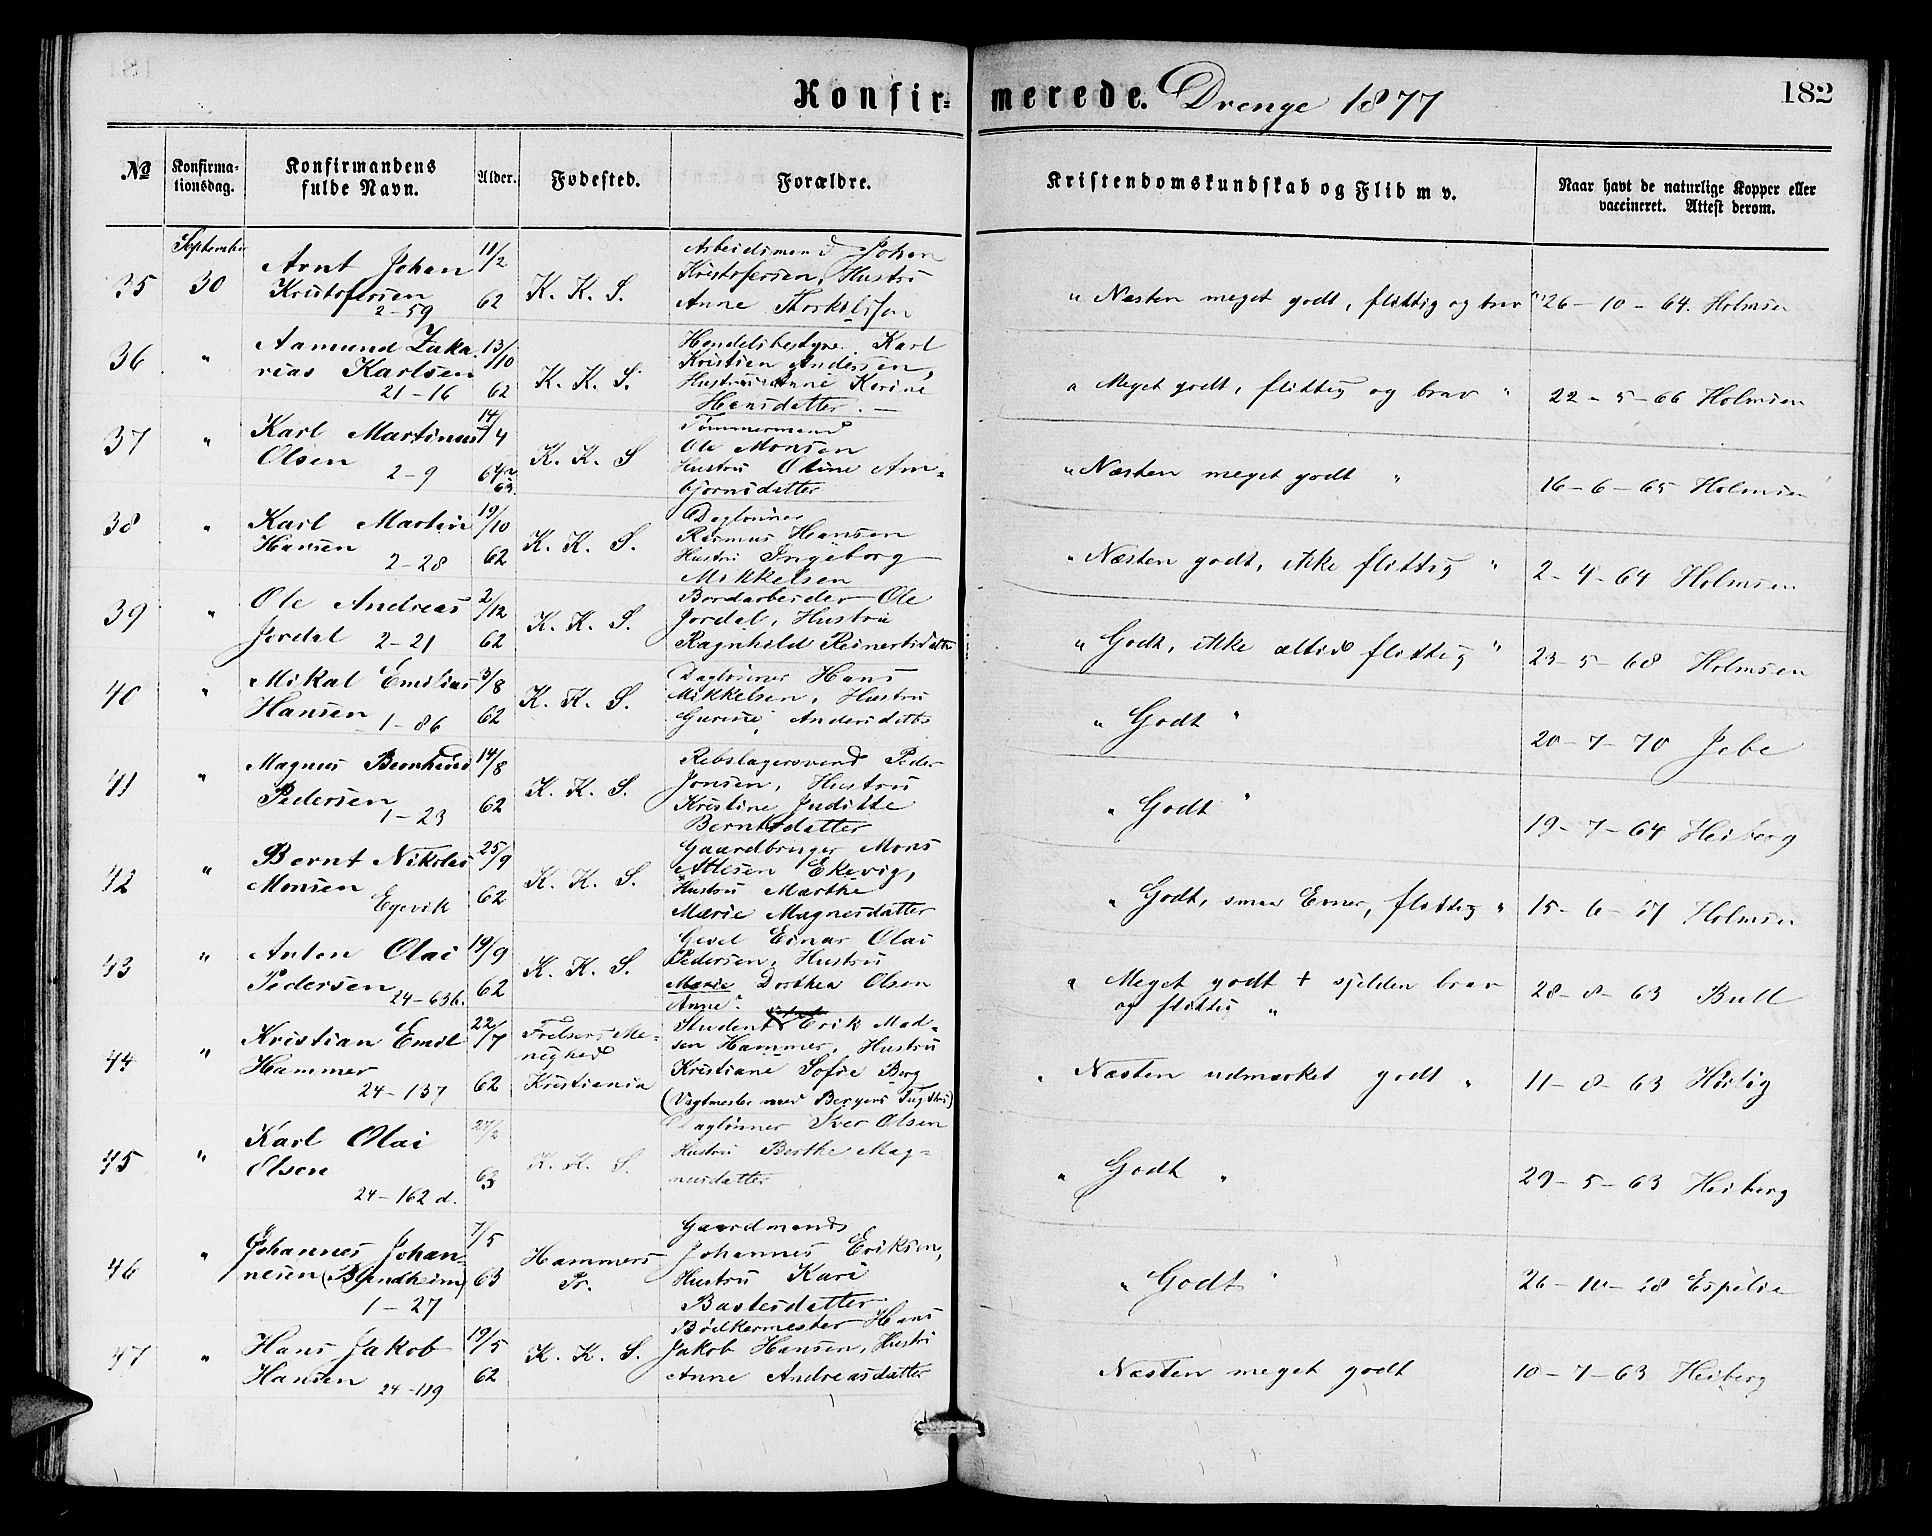 Konfir= merede. Drenge 1877
182
No
Konfirma-
tionsdag.
Konfirmandens
fulde Navn.
Alder.
Fødested.
Forældre.
Kristendomskundskab og Flid m v.
Naar havt de naturlige Kopper eller
vaccineret. Attest derom.
September
35 30
Arnt Johan
Kristofersen
2-59
11/2
62
K. K. S.
Arbeidsmand Johan
Kristofersen, Hustru
Anne Thorkilsen
" Næsten meget godt, flittig og brav "
26-10-64. Holmsen
36 "
Aamund Zaka
rias Karlsen
21-16
13/10
62
K. K. S.
Handelsbestyrer Karl
Kristian Andersen,
Hustru Anne Karine
Hansdatter. —
" Meget godt, flittig og brav "
22-5-66 Holmsen
37 "
Karl Martinus
Olsen
2-9
14/4
K. K. S
Tømmermand
Ole Monsen
Hustru Oline Arn-
bjørnsdatter
" Næsten meget godt "
16-6-65 Holmsen
38 "
Karl Martin
Hansen
2-28
19/10
62
K. K. S.
Daglønner
Rasmus Hansen
Hustru Ingeborg
Mikkelsen
" Næsten godt, ikke flittig "
2-4-64 Holmsen
39 "
Ole Andreas
Jordal 2-21
2/12
62
K. K. S.
Bordarbeider Ole
Jordal, Hustru
Ragnhild Reinertsdatter
" Godt, ikke altid flittig "
23-5-68 Holmsen
40 "
Mikal Emilius
Hansen 1-86
3/8
62
K. K. S.
Daglønner Hans
Mikkelsen, Hustru
Gurine Andersdatter
" Godt "
20-7-70 Jebe
41 "
Magnus Bernhard
Pedersen
1-23
14/8
62
K. K. S.
Rebslagersvend Peder
Jonsen, Hustru
Kristine Juditte
Berntsdatter
" Godt "
19-7-64 Heiberg
42 "
Bernt Nikolai
Monsen
Egevik
25/9
62
K. K. S.
Gaardbruger Mons
Atlesen Ekevig,
Hustru Marthe
Marie Magnesdatter
" Godt, smaa Evner, flittig "
15-6-71 Holmsen
43 "
Anton Olai
Pedersen
24-63b.
19/9
62
K. K. S.
Einar Olai
Pedersen, Hustru
Marie Dorthea Olsen
Anne?
" Meget godt + sjelden brav
og flittig "
28-8-63 Bull
44 "
Kristian Emil
Hammer
24-137
22/7
62
Frelsers Me-
nighed
Kristiania
Student Erik Mad-
sen Hammer, Hustru
Kristiane Sofie Borg
(Vagtmester ved Bergens Tugthus)
" Næsten udmærket godt "
11-8-63
45 "
Karl Olai
Olsen
24-162 d.
27/2
63
K. K. S.
Daglønner Iver Olsen
Hustru Berthe Mag-
nusdatter
" Godt "
29-5-63 Heiberg
46 "
Johannes Johan-
nesen (Blindheim)
1-27
7/5
63
Hammers
Pr.
Gaardmand
Johannes Eriksen,
Hustru Kari
Bastesdatter
" Godt "
26-10-68 Espelie
47 "
Hans Jakob
Hansen
24-119
19/5
62
K. K. S.
Bødkermester Hans
Jakob Hansen, Hustru
Anne Andreasdatter
Næsten meget godt
10-7-63 Heiberg